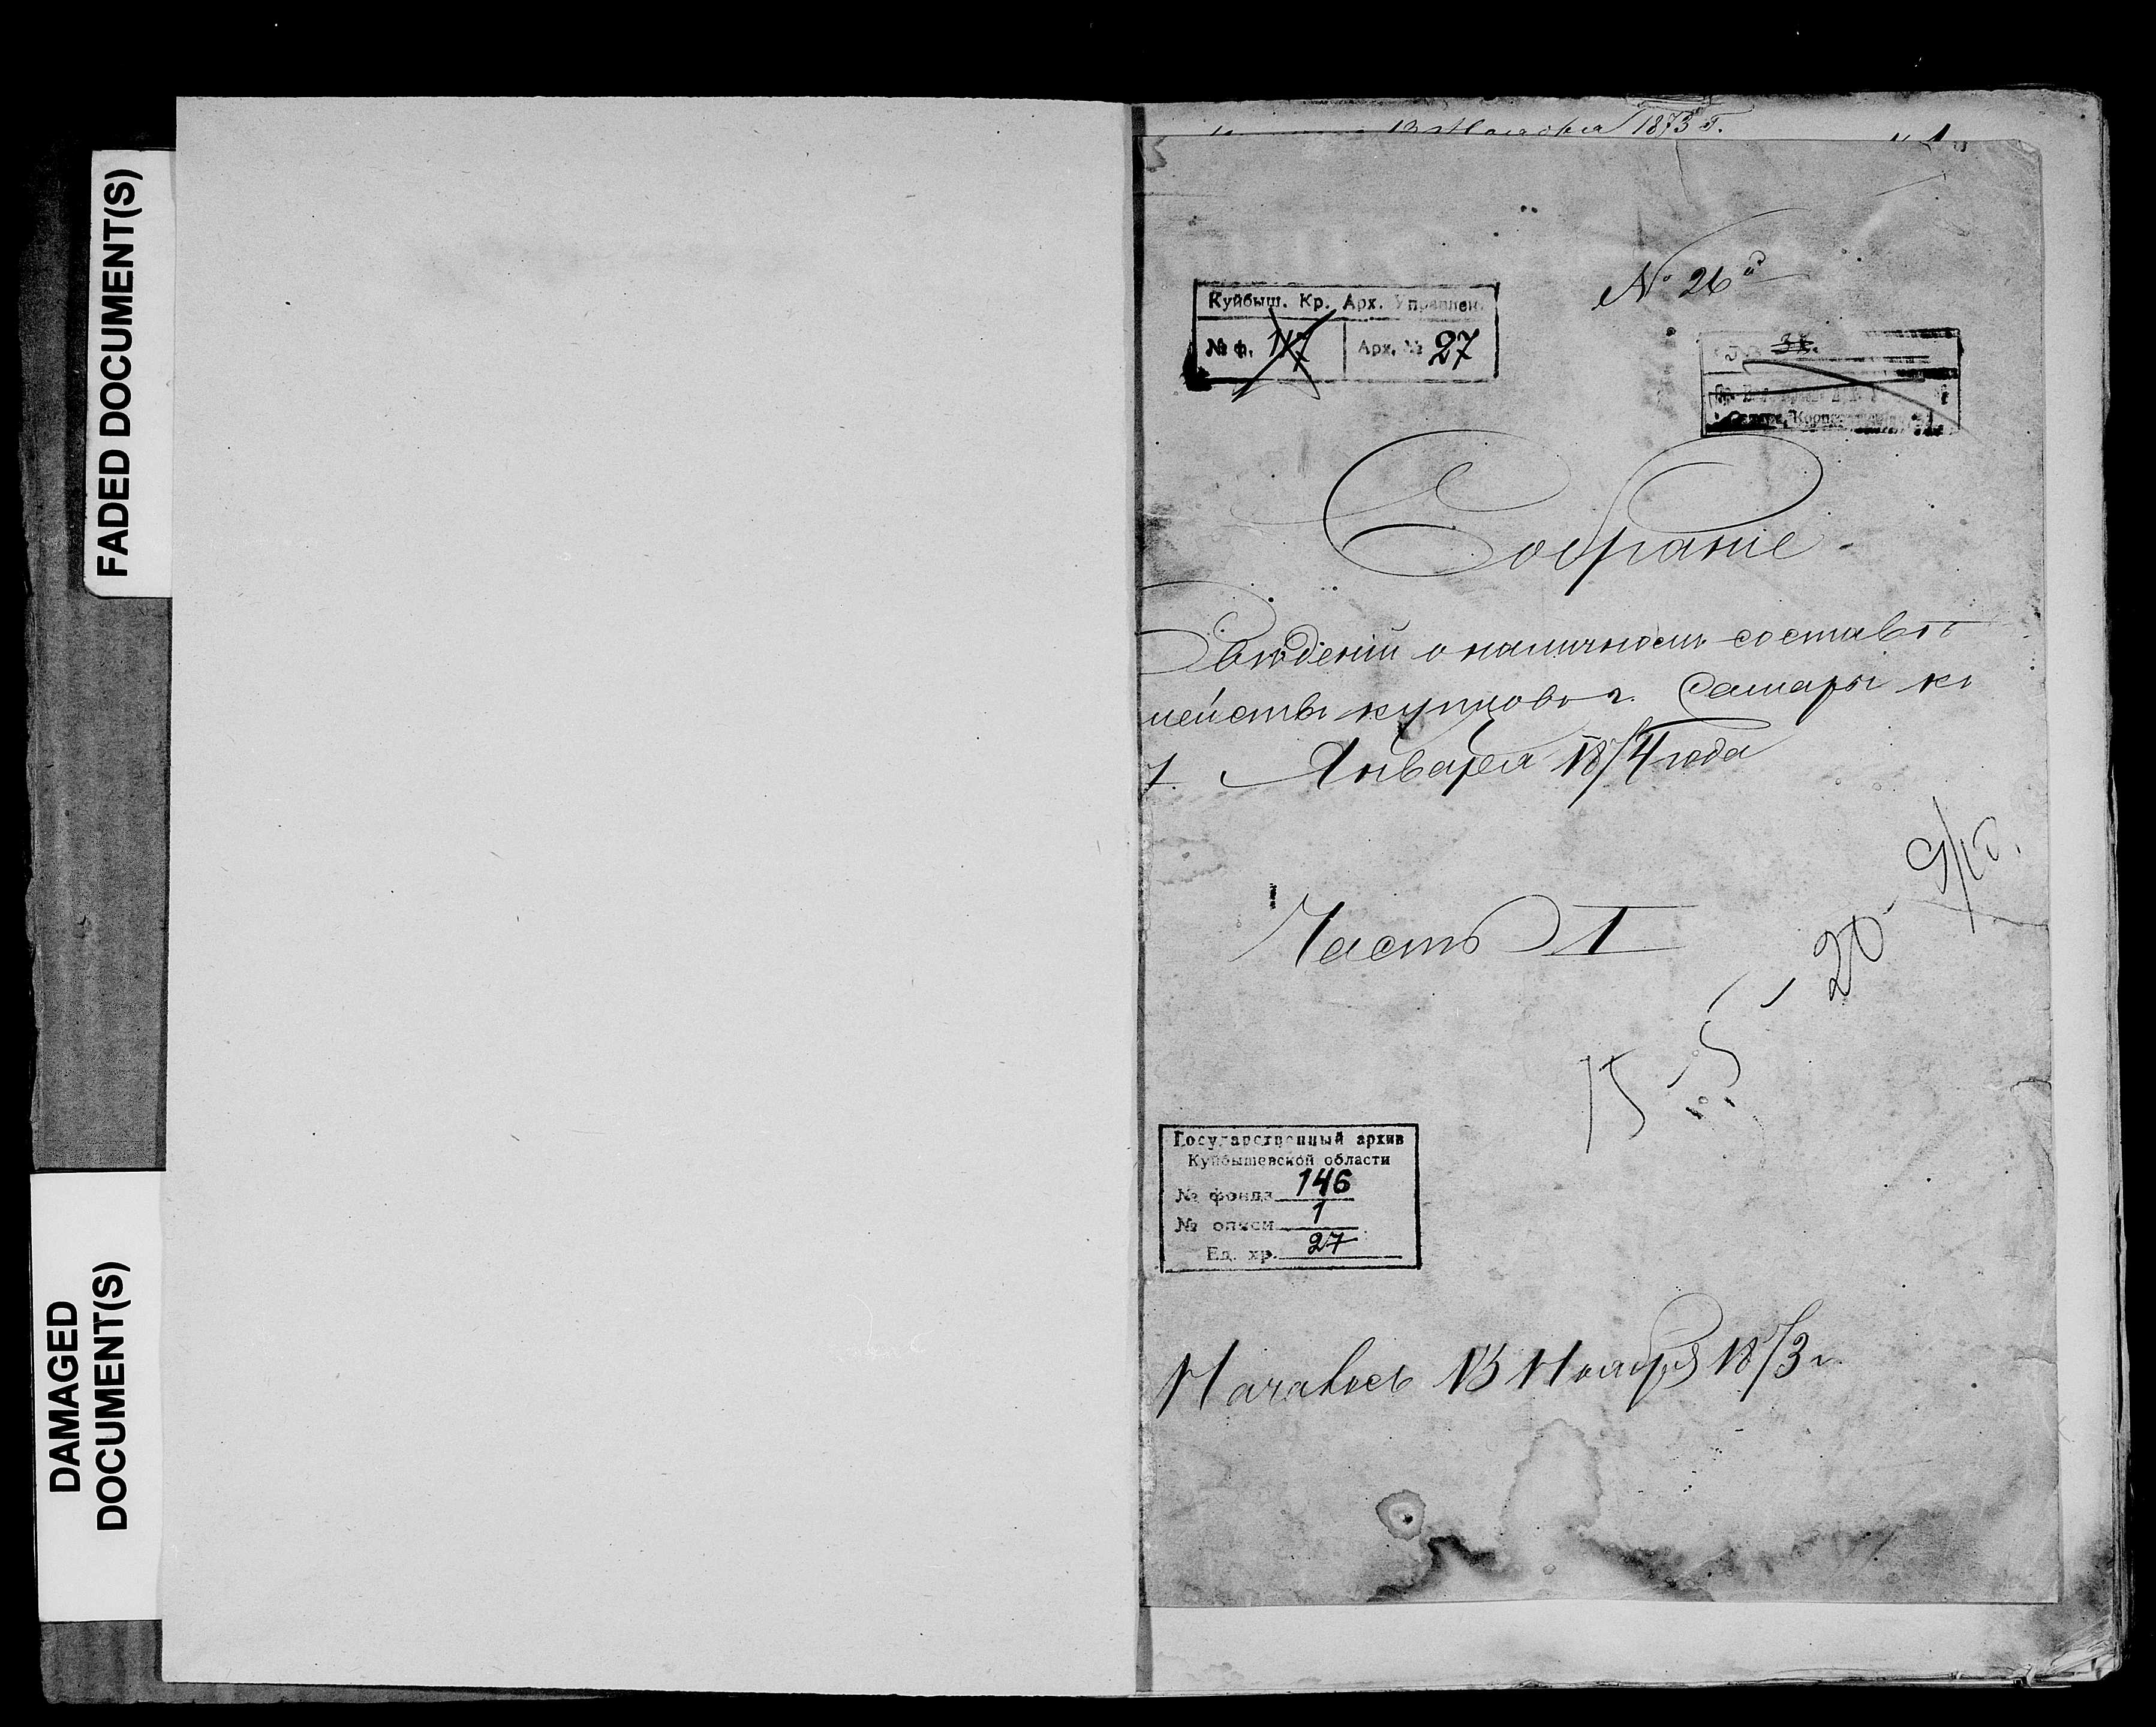 FADED DOCUMENT(S)
DAMAGED
DOCUMENT(S)
1873 г.
№ 26й
Куйбыш. Кр. Арх. Управлен.
№ ф. 147 Арх. № 27
37.
Собраніе
Свѣдѣній о наличномъ составѣ
мействъ купцовъ г. Самары къ
1. Января 1874 года
Часть I
20
15
5
Государственный архив
Куйбышевской области
№ фонда 146
№ описи 1
Ед. хр. 27
Началось 13 Ноября 1873 г.